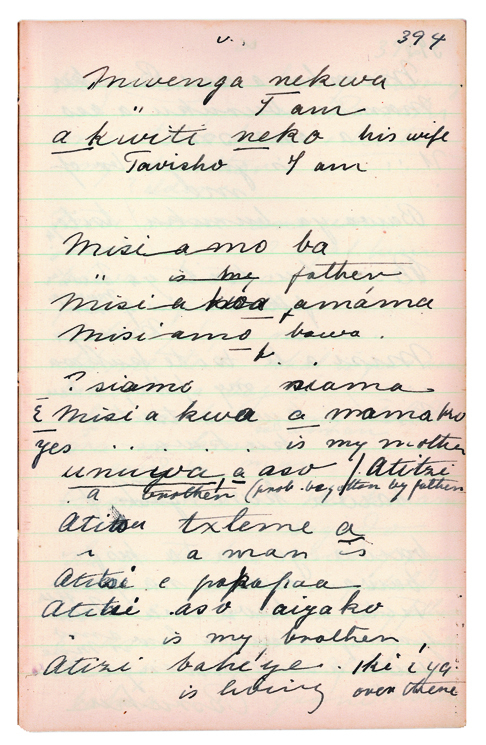 v. 394
Mwenga nekwa
" I am
a kwiti neko his wife
Tavisho I am
Misi amo ba
" is my father
Misi a koa amáma
Misi amo bawa.
f.
? siamo siama
Misi a kwa a mama ko
yes . . . . . is my mother
unuwa a aso / Atitzi
a brother (prob. begotten by father
txleme a
a man is
e papapaa
aso aiyako
" is my brother
Atizi bahe'ye. Iki i'ya
is living over there